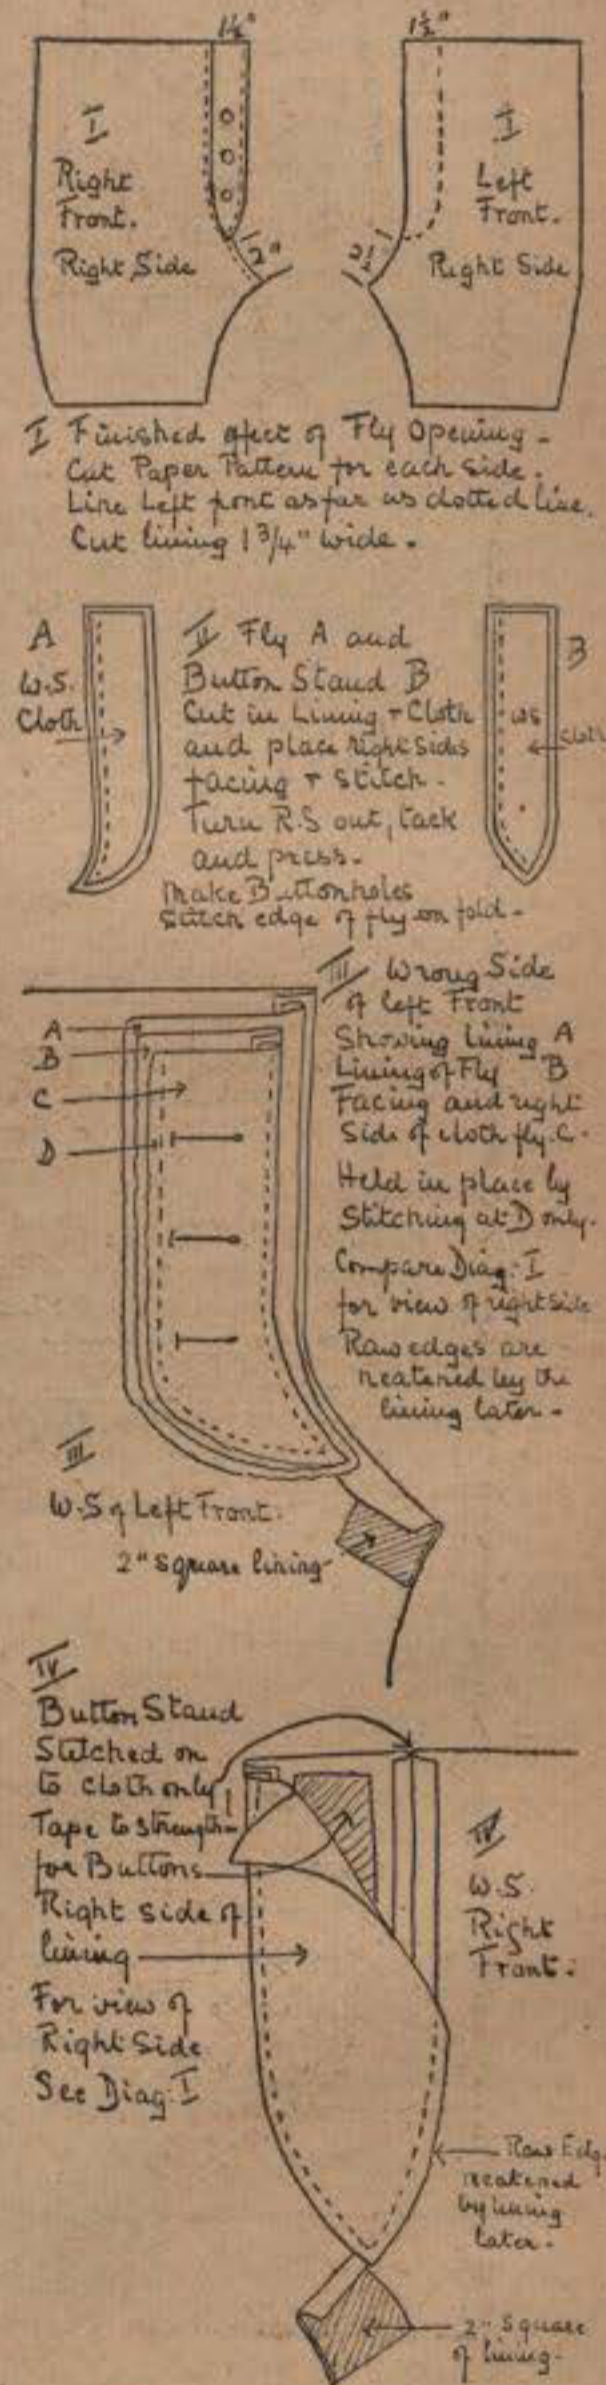 1½"
1½"
I
Right
Front.
Right Side
2"
I
Left
Front.
Right Side
2½
I Finished effect of Fly Opening -
Cut Paper Pattern for each side.
Line Left front as far as dotted line.
Cut lining 1 3/4" wide.
A
W.S.
Cloth
II Fly A and
Button Stand B
Cut in Lining + Cloth
and place right sides
facing + stitch.
Turn R.S out, tack
and press.
Make Buttonholes
Stitch edge of fly on fold.
B
WS
Cloth
A
B
C
D
III Wrong Side
of left Front
Showing lining A
Lining of Fly B
Facing and right
Side of cloth fly. C.
Held in place by
Stitching at D only.
Compare Diag. I
for view of right side
Raw edges are
neatened by the
lining later -
III
W.S of Left Front.
2" square lining
IV
Button Stand
Stitched on
to cloth only
Tape to strength-
for Buttons
Right side of
lining
For view of
Right Side
See Diag. I
IV
W.S.
Right
Front.
Raw Edge
neatened
by lining
later.
2" Square
of lining.